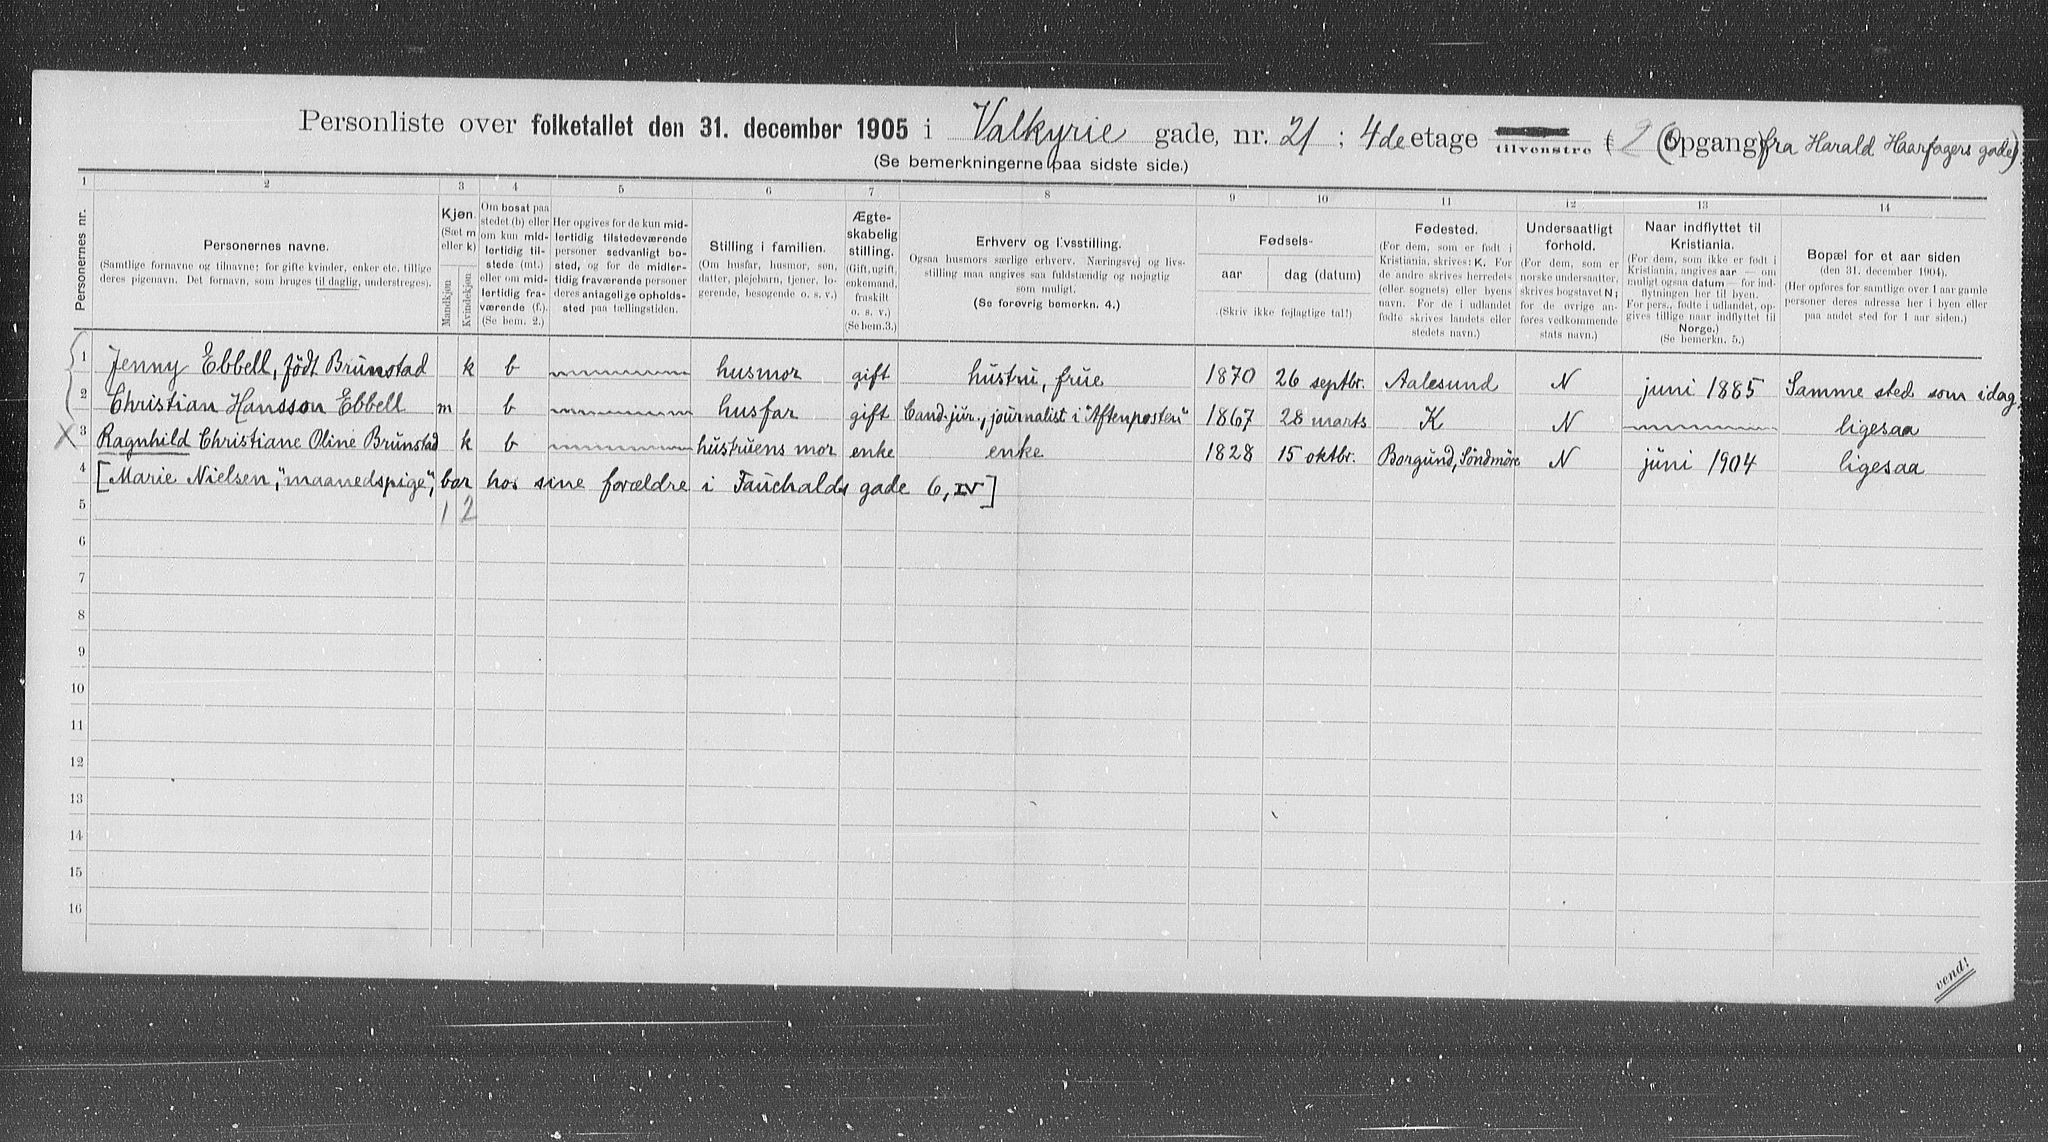 Personliste over folketallet den 31. december 1905 i Valkyrie gade, nr. 21 ; 4de etage tilvenstre 2 (opgang) fra Harald Haarfagers gade)
(Se bemerkningerne paa sidste side.)
1 2 3 4 5 6 7 8 9 10 11 12 13 14
Personernes nr.
Personernes navne.
(Samtlige fornavne og tilnavne; for gifte kvinder, enker etc. tillige
deres pigenavn. Det fornavn, som bruges til daglig, understreges).
Kjøn.
(Sæt m
eller k)
Mandkjøn
Kvindekjøn
Om bosat paa
stedet (b) eller
om kun mid-
lertidig til-
stede (mt.)
eller om mid-
lertidig fra-
værende (f.).
(Se bem. 2.)
Her opgives for de kun mid-
lertidig tilstedeværende
personer sedvanligt bo-
sted, og for de midler-
tidig fraværende personer
deres antagelige opholds-
sted paa tællingstiden.
Stilling i familien.
(Om husfar, husmor, søn,
datter, plejebarn, tjener, lo-
gerende, besøgende o. s. v.)
Ægte-
skabelig
stilling.
(Gift, ugift,
enkemand,
fraskilt
o. s. v.)
(Se bem.3.)
Erhverv og livsstilling.
Ogsaa husmors særlige erhverv. Næringsvej og livs-
stilling maa angives saa fuldstændig og nøjagtig
som muligt.
(Se forøvrig bemerkn. 4.)
Fødsels-
aar
dag (datum)
(Skriv ikke fejlagtige tal!)
Fødested.
(For dem, som er født i
Kristiania, skrives: K. For
de andre skrives herredets
(eller sognets) eller byens
navn. For de i udlandet
fødte skrives landets eller
stedets navn.)
Undersaatligt
forhold.
(For dem, som er
norske undersaatter,
skrives bogstavet N;
for de øvrige an-
føres vedkommende
stats navn.)
Naar indflyttet til
Kristiania.
(For dem, som ikke er født i
Kristiania, angives aar — om
muligt ogsaa datum — for ind-
flytningen her til byen.
For pers., fødte i udlandet, op-
gives tillige naar indflyttet til
Norge.)
(Se bemerkn. 5.)
Bopæl for et aar siden
(den 31. december 1904).
(Her opføres for samtlige over 1 aar gamle
personer deres adresse her i byen eller
paa andet sted for 1 aar siden.)
1 Jenny Ebbell, født Brunstad k b husmor gift hustru, frue 1870 26 septbr. Aalesund N juni 1885 Samme sted som idag.
2 Christian Hansson Ebbell m b husfar gift Cand. jur., journalist i "Aftenposten" 1867 28 marts K N ligesaa
X 3 Ragnhild Christiane Oline Brunstad k b hustruens mor enke enke 1828 15 oktbr. Borgund, Söndmöre N juni 1904 ligesaa
4 [Marie Nielsen, "maanedspige", bor hos sine forældre i Fauchalds gade 6, IV]
5 1 2
6
7
8
9
10
11
12
13
14
15
16
vend!